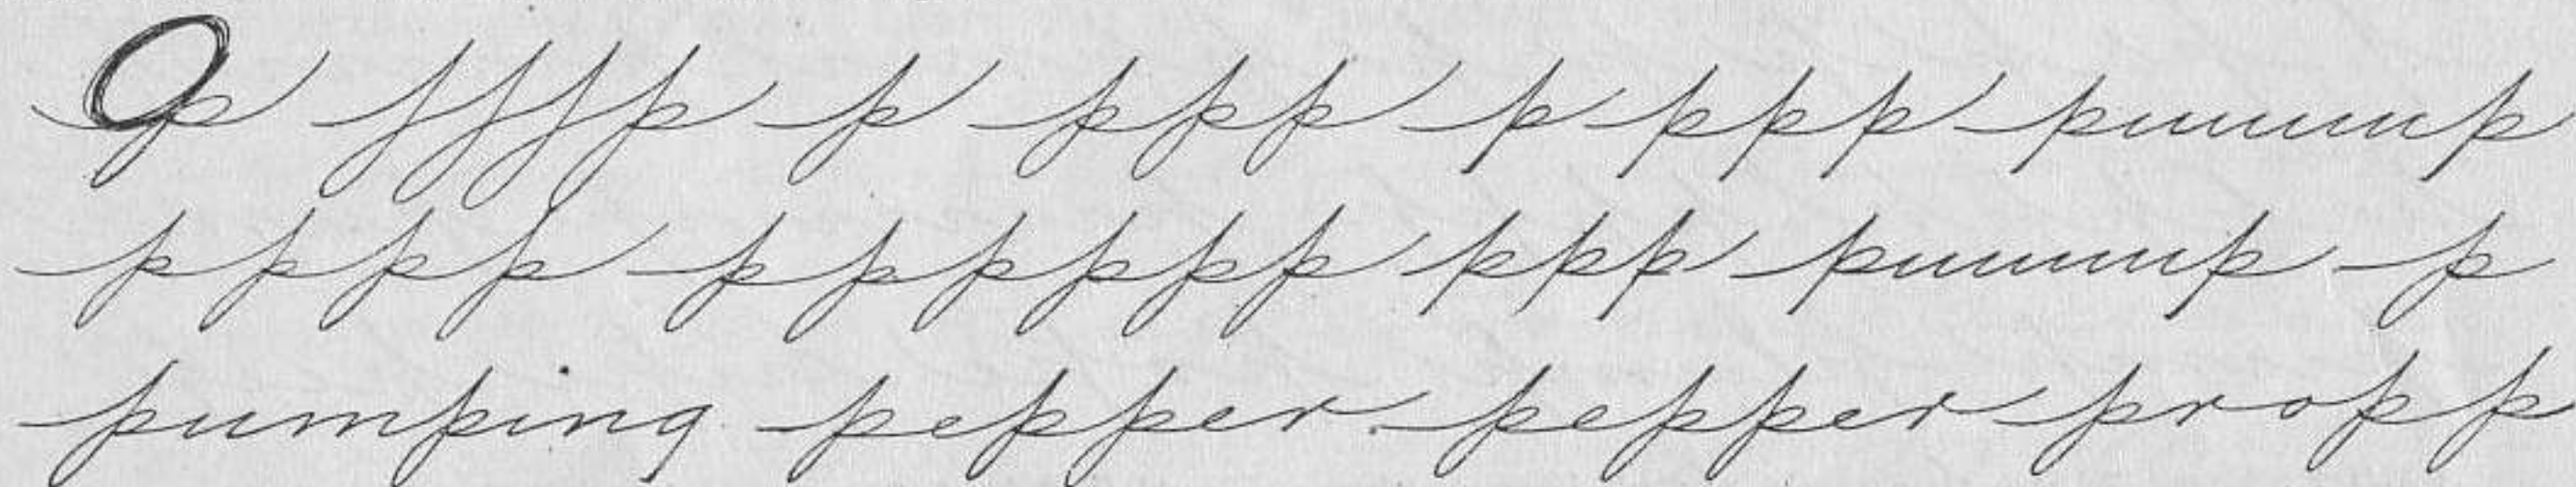 p p p ppp p ppp pummp
pppp pppppp ppp pummp p
pumping pepper pepper propp